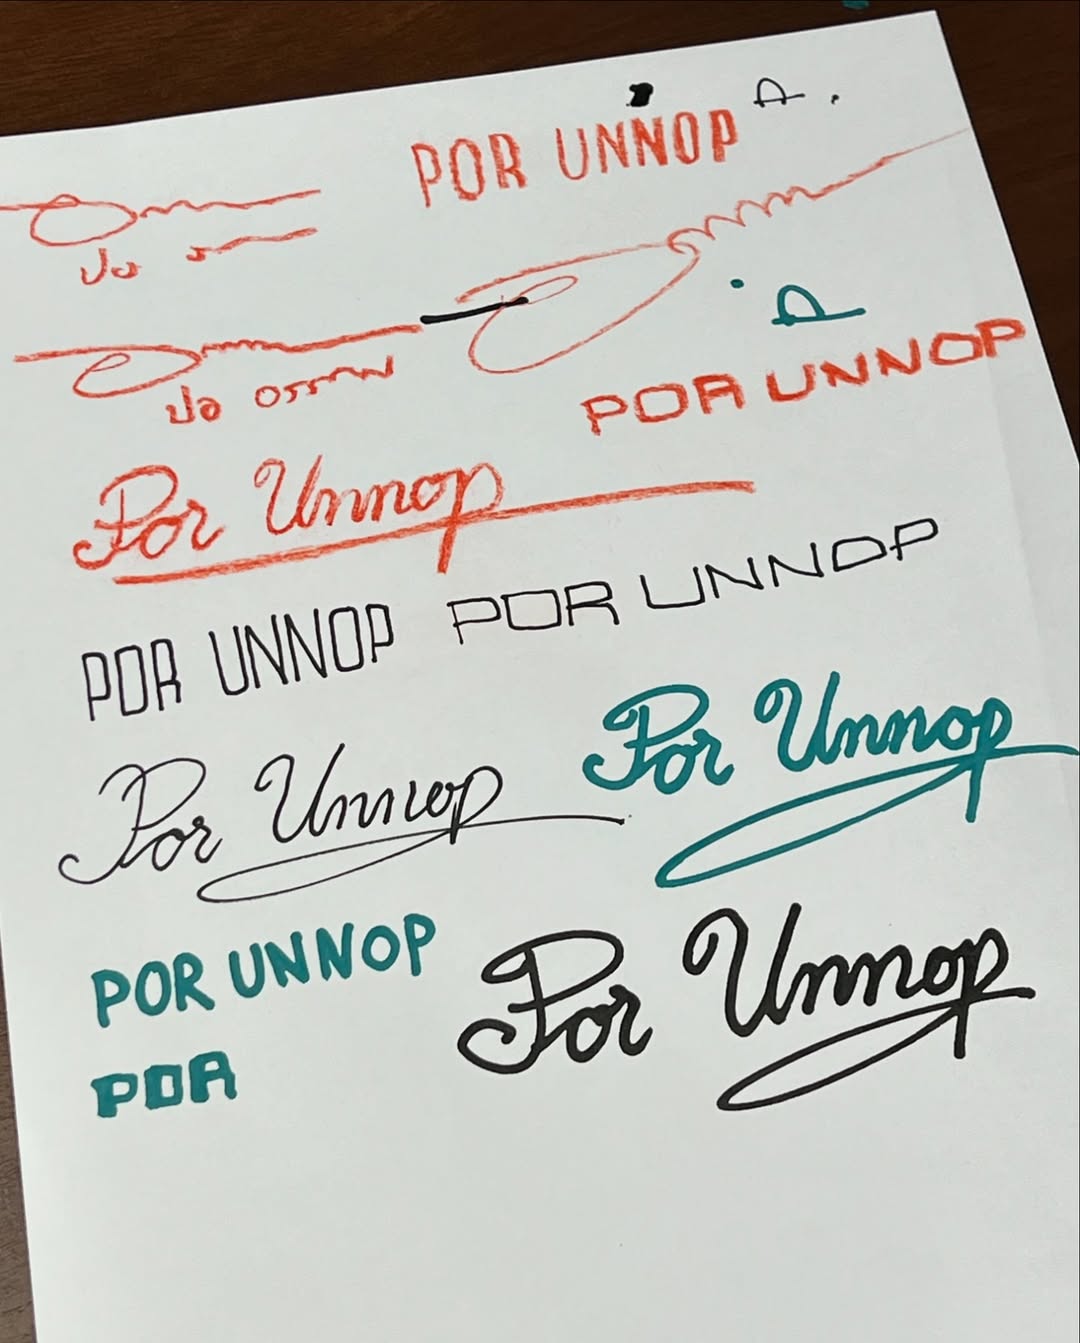 POR UNNOP
ปอ
ปอ อรรณพ
POR UNNOP
Por Unnop
POR UNNOP
POR UNNOP
Por Unnop
Por Unnop
POR UNNOP
Por Unnop
POR